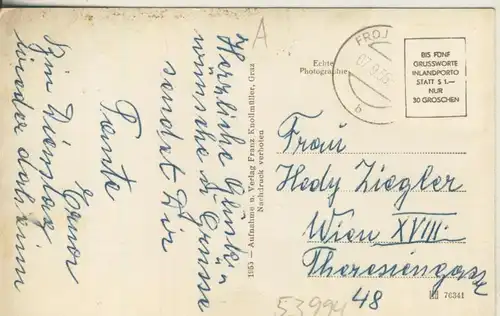 Herzliche Glück-
wünsche u. Grüsse
sendet Dir
Tante
Bin Dienstag
wieder daheim
A
Echte
Photographie
1955 — Aufnahme u. Verlag Franz Knollmüller, Graz
Nachdruck verboten
FROJ
07.9.56
b
BIS FÜNF
GRUSSWORTE
INLANDPORTO
STATT S 1.—
NUR
30 GROSCHEN
Frau
Hedy Ziegler
Wien XVIII.
Theresiengasse
48
76341
53994